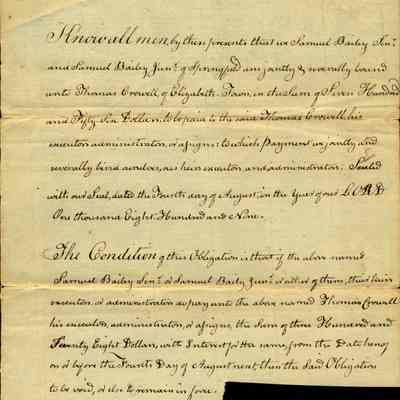 Know all men by these presents that we Samuel Bailey Senr.
and Samuel Bailey Junr. of Springfield are jointly & severally bound
unto Thomas Crowell of Elizabeth Town, in the Sum of Seven Hundred
and Fifty Six Dollars, to be paid to the said Thomas Crowell, his
executors administrators, or assigns: to which Payment we jointly and
severally bind ourselves, our heirs executors and administrators. Sealed
with our Seal, dated the Fourth day of August, in the Year of our LORD
One thousand Eight Hundred and Nine.
The Condition of this Obligation is that if the above named
Samuel Bailey Senr. or Samuel Baily Junr. or either of them, their heirs
executors, or administrators do pay unto the above named Thomas Crowell
his executors, administrators, or assigns, the Sum of three Hundred and
Seventy Eight Dollars, with Interest for the same, from the Date hereof
on or before the Fourth Day of August next, then the Said Obligation
to be void, or else to remain in force.